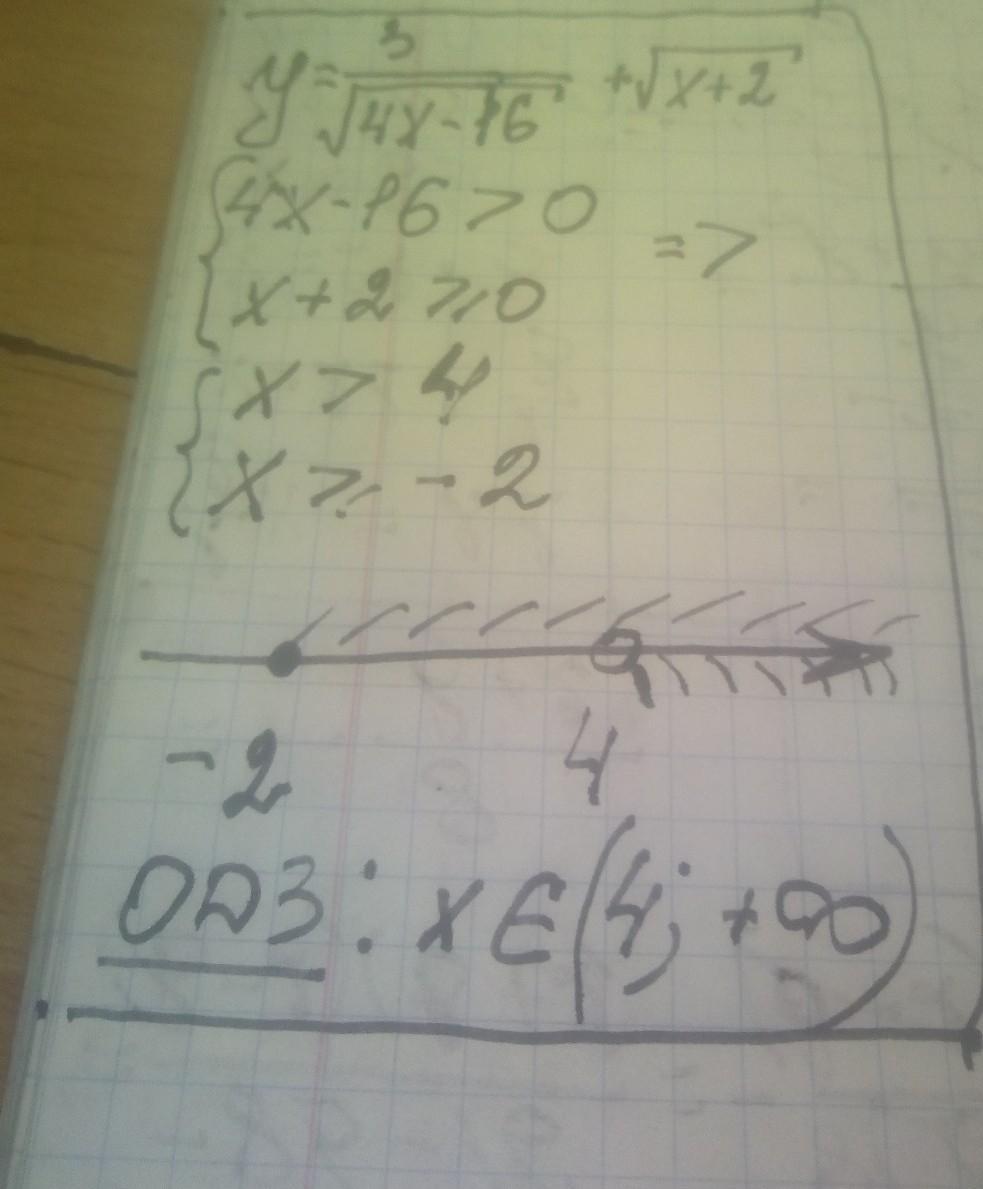 y = 3/√(4x-16) + √(x+2)
{4x-16 > 0
=>
x+2 ⩾ 0
{x > 4
x ⩾ -2
-2 4
ОДЗ: x ∈ (4; +∞)